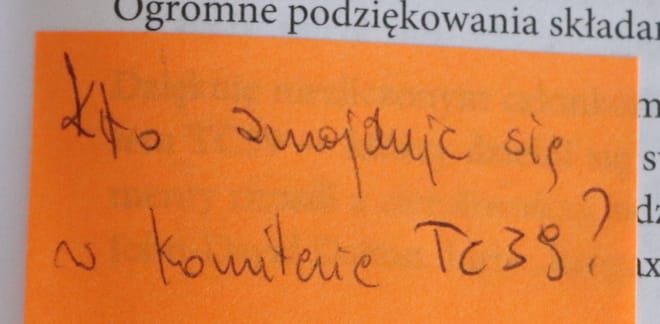 Ogromne podziękowania składa
Kto znajduje się
w komitecie TC39?